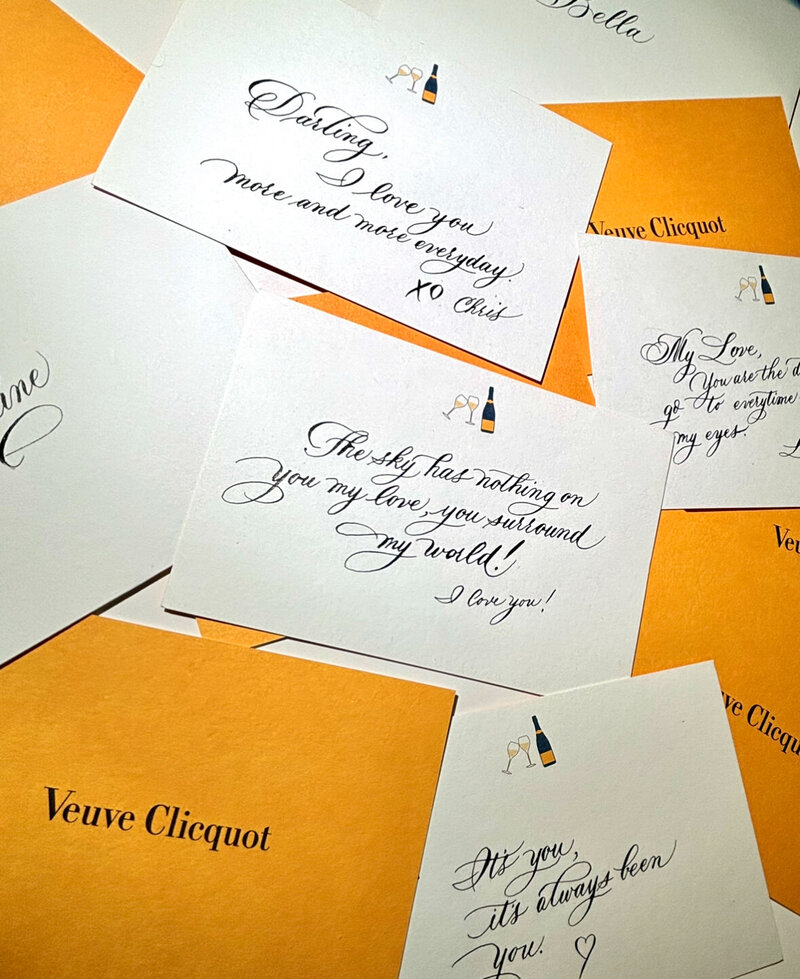 Bella
Darling,
I love you
more and more everyday.
XO Chris
Veuve Clicquot
My Love,
You are the
go to everytime
my eyes.
The sky has nothing on
you my love, you surround
my world!
I love you!
Veuve Clicquot
It's you,
it's always been
you. ♡